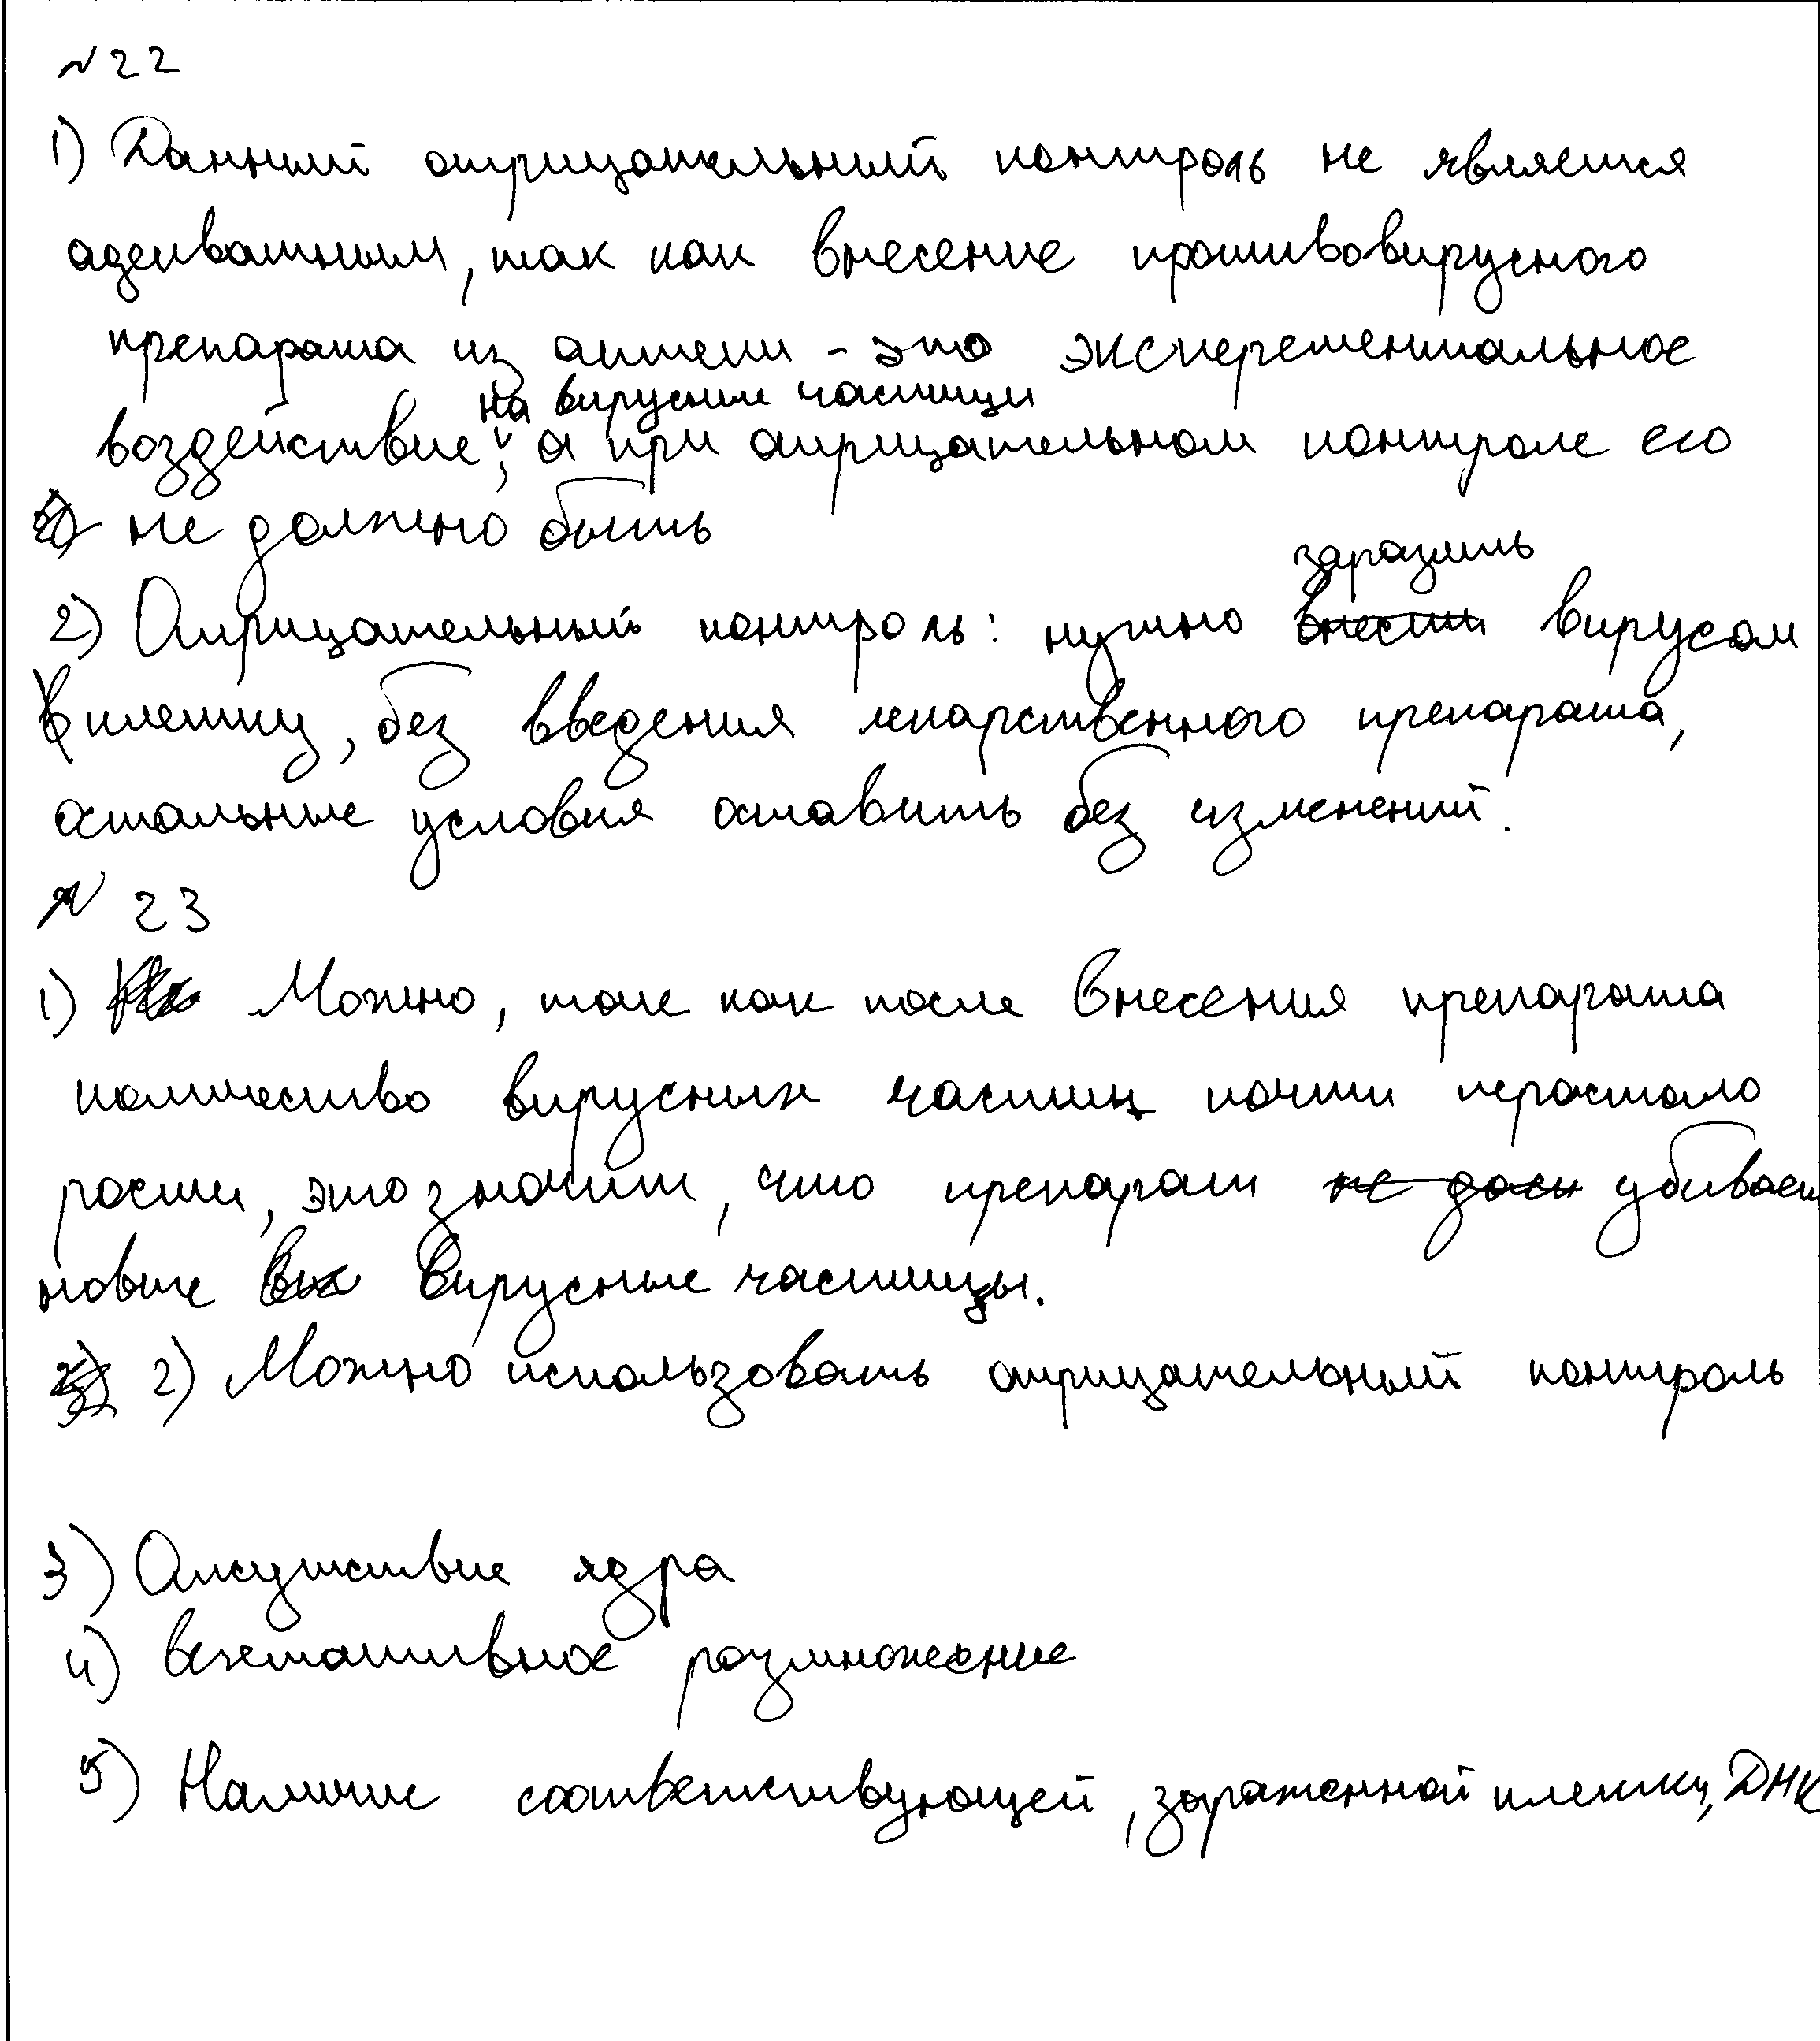 №22
1) Данный отрицательный контроль не является
адекватным, так как внесение противовирусного
препарата из аптеки - это эксперементальное
на вирусные частицы
воздействие, а при отрицательном контроле его
не должно быть
заразить
2) Отрицательный контроль: нужно внести вирусом
клетку, без введения лекарственного препарата,
остальные условия оставить без изменений.
№ 23
1) Можно, так как после внесения препарата
количество вирусных частиц почти перостало
расти, это значит, что препарат убивает
новые вирусные частицы.
2) Можно использовать отрицательный контроль
3) Отсутствие ядра
4) Вегетативное размножение
5) Наличие соответствующей, зараженной клетки, ДНК